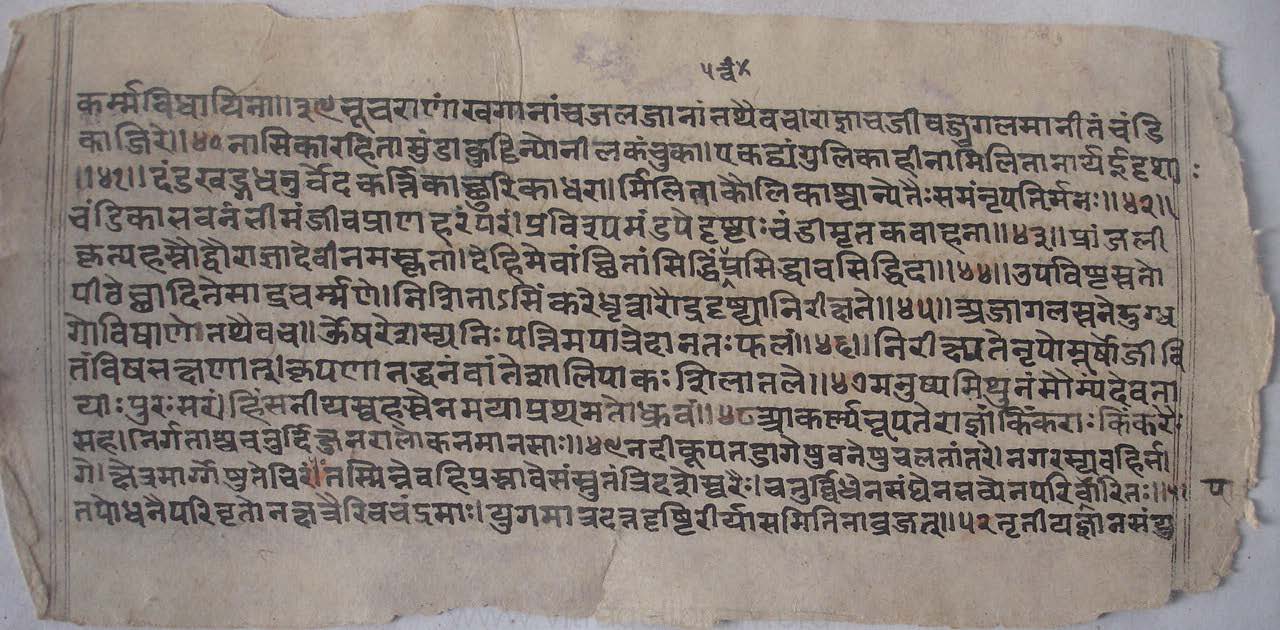 ५चं४
कर्म्मविधायिना॥३९ भूचराणां खगानां च जलजानां तथैव च। राज्ञा च जीवयुगलमानीतं चंडि
काजिरे॥४० नासिकारहिता मुंडा कुट्टिन्यो नीलकंचुका। एकद्व्यंगुलिकाहीना मिलिता नार्य ईदृशा:
॥४१॥ दंडखड्गधनुर्वेदकर्त्तिकाछुरिकाधरा। मिलिता कौलिकाश्चान्ये तैः समं नृपनिर्ममः॥४२॥
चंडिकाभवनं भीमं जीवप्राणहरं परं। प्रविश्य मंडपे दृष्टाः चंडी मृतकवाहना॥४३॥ प्रांजली
कृत्य हस्तौ द्वौ राज्ञा देवी नमस्कृता। देहि मे वांछितां सिद्धिं प्रसिद्धाव सिद्धिदा॥४४॥ उपविष्टस्ततो
पीठे छादिते सार्द्रचर्म्मणे। निशिताऽसिं करे धृत्वा रौद्रदृष्ट्या निरीक्षते॥४५॥ अजागलस्तने दुग्ध
गोविषाणे तथैव च॥ ऊषरे शस्यनिःपत्तिमपात्रे दानतः फलं॥४६॥ निरीक्ष्यते नृपो मूर्षो जीवि
तं विषभक्षणात्। कृपणात् धनं वांते शालिपाकः शिलातले॥४७ मनुष्यमिथुनं सौम्य देवता
याः पुरःसरं। हिंसनीयं स्वहस्तेन मया प्रथमतो ध्रुवं॥४८ आकर्ण्य नृपतेराज्ञां किंकराः किंकरैः
सह। निर्गताश्च चतुर्दिक्षु नरालोकनमानसाः॥४९ नदीकूपतडागेषु वनेषु चलतांतरे। नगरस्य बहिर्मा
गे। क्षेत्रमार्ग्गेषु ते चिरं तस्मिन्नेव हि प्रस्तावे संस्तुतं त्रिदशेश्वरैः। चतुर्व्विधेन संघेन भव्येन परिवारितः॥५१
तपोधनैपरिवृतो नक्षत्रैरिव चंद्रमाः। युगमात्रदत्तदृष्टिरीर्यासमितिना व्रजत्॥५२ तृतीयज्ञानसंयु